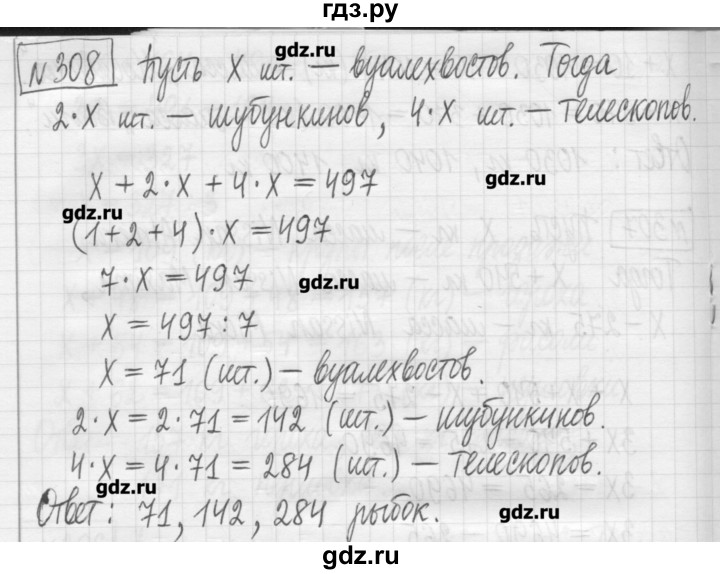 гдз.ру
№308 Пусть x шт. — вуалехвостов. Тогда
gdz.ru
2·x шт. — шубункинов, 4·x шт. — телескопов.
x + 2·x + 4·x = 497
gdz.ru
gdz.ru
(1+2+4)·x = 497
7·x = 497
gdz.ru
x = 497:7
x = 71 (шт.) — вуалехвостов.
2·x = 2·71 = 142 (шт.) — шубункинов.
4·x = 4·71 = 284 (шт.) — телескопов.
gdz.ru
Ответ: 71, 142, 284 рыбок.
gdz.ru
gdz.ru